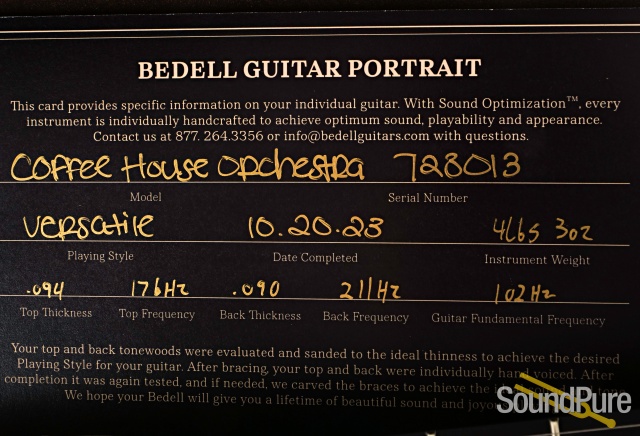 BEDELL GUITAR PORTRAIT
This card provides specific information on your individual guitar. With Sound Optimization™, every
instrument is individually handcrafted to achieve optimum sound, playability and appearance.
Contact us at 877. 264.3356 or info@bedellguitars.com with questions.
Coffee House Orchestra 728013
Model Serial Number
versatile 10.20.23 4lbs 3oz
Playing Style Date Completed Instrument Weight
.094 176Hz .090 211Hz 102Hz
Top Thickness Top Frequency Back Thickness Back Frequency Guitar Fundamental Frequency
Your top and back tonewoods were evaluated and sanded to the ideal thinness to achieve the desired
Playing Style for your guitar. After bracing, your top and back were individually hand voiced. After
completion it was again tested, and if needed, we carved the braces to achieve the
We hope your Bedell will give you a lifetime of beautiful sound and
SoundPure